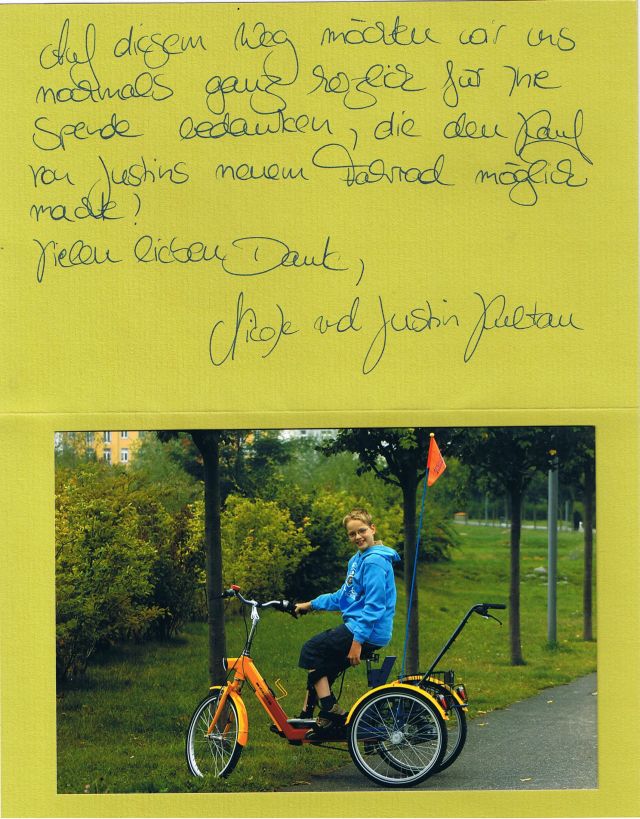 Auf diesem Weg möchten wir uns
nochmals ganz herzlich für Ihre
Spende bedanken, die den Kauf
von Justins neuem Fahrrad möglich
machte!
Vielen lieben Dank,
Nicole und Justin